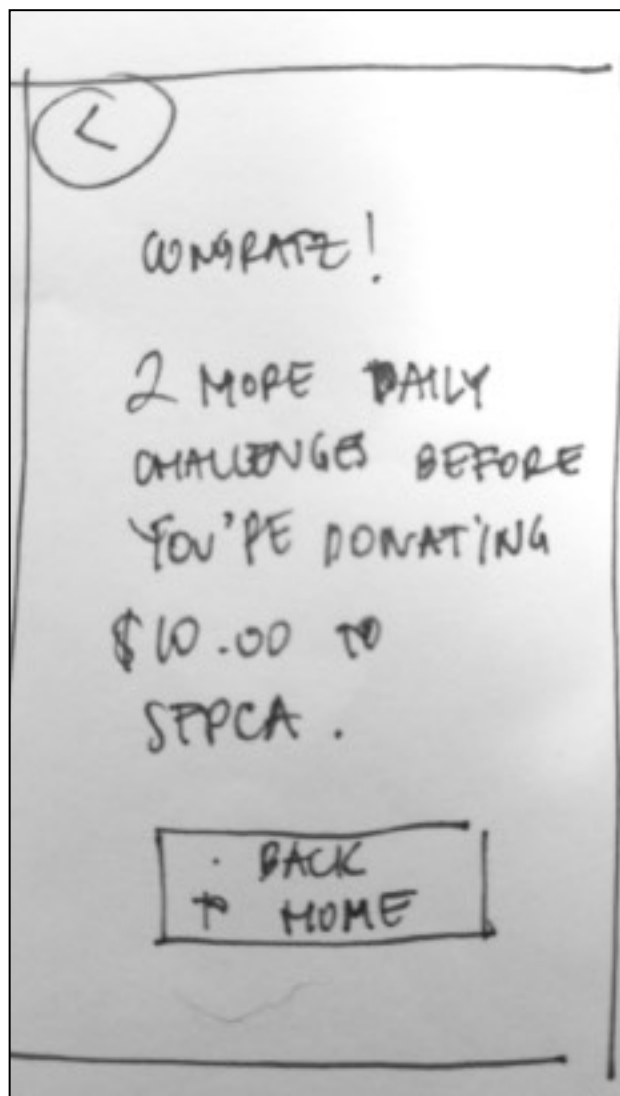 <
CONGRATZ!
2 MORE DAILY
CHALLENGES BEFORE
YOU'RE DONATING
$10.00 TO
SFPCA.
BACK
TO HOME